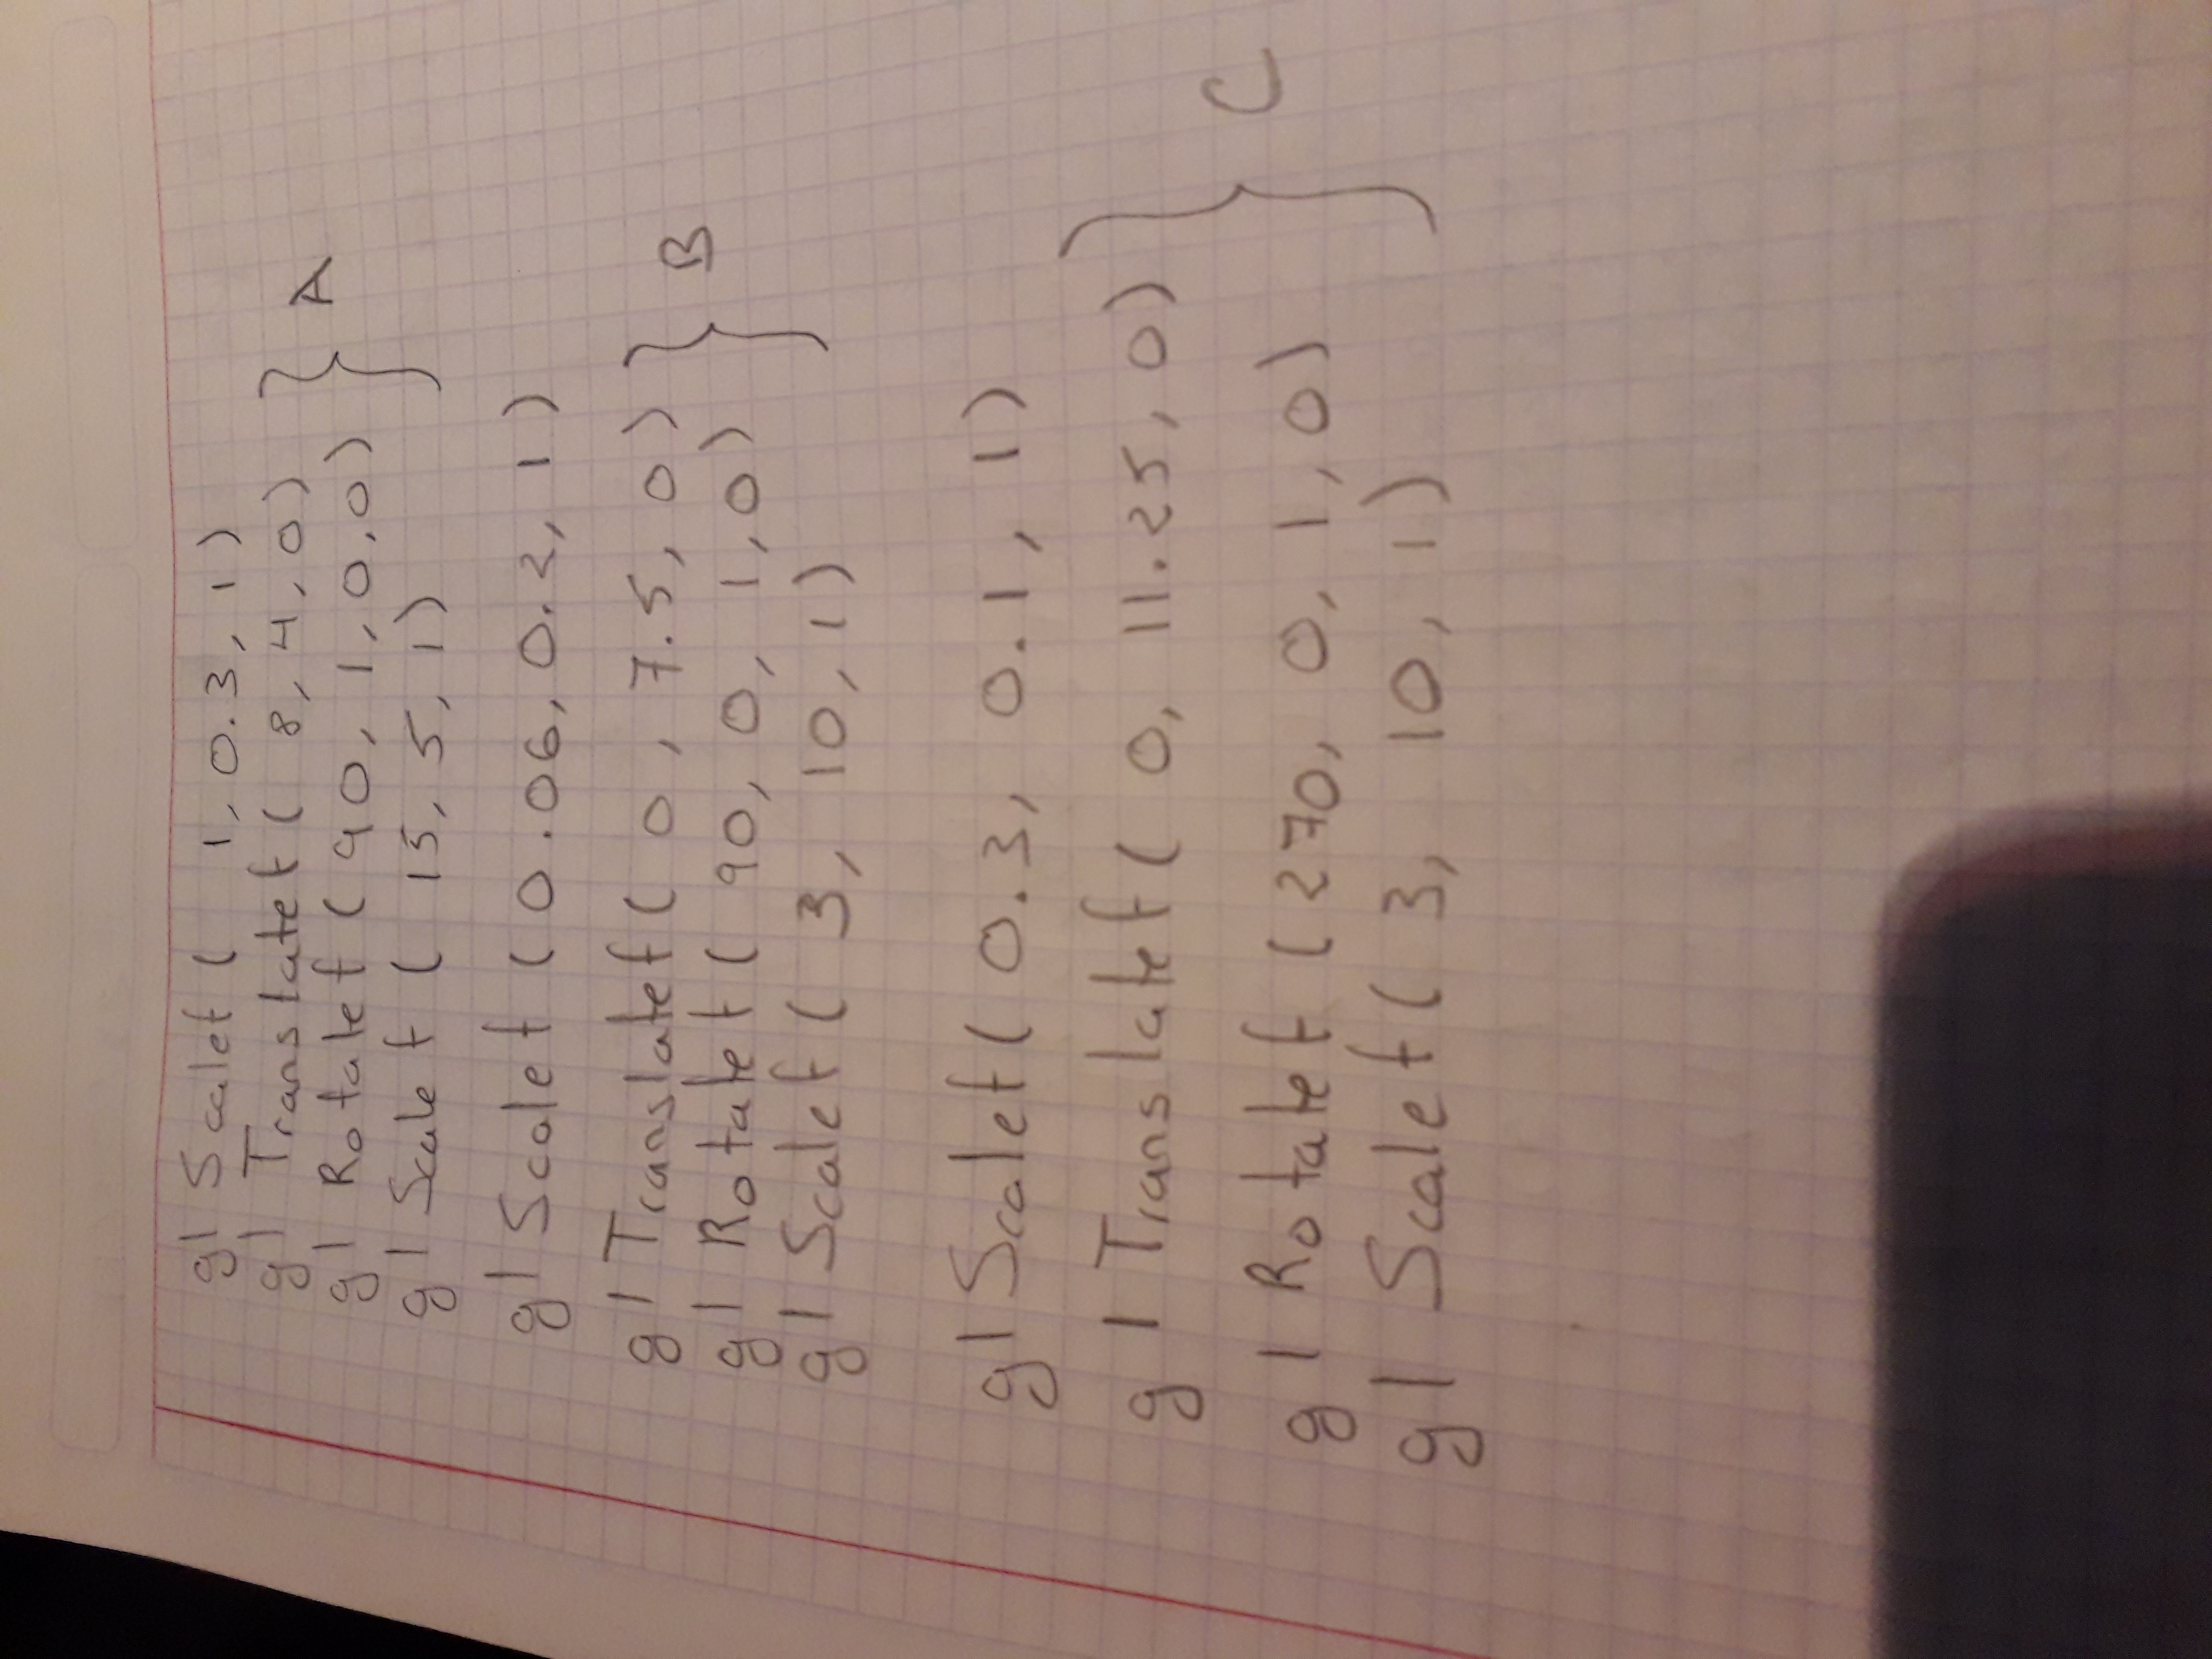 gl Scalef ( 1, 0.3, 1)
gl Translatef ( 8, 4, 0) } A
gl Rotatef (90, 1, 0, 0)
gl Scalef ( 15, 5, 1)
gl Scalef (0.06, 0.2, 1)
gl Translatef ( 0, 7.5, 0) } B
gl Rotatef ( 90, 0, 1, 0)
gl Scalef ( 3, 10, 1)
gl Scalef ( 0.3, 0.1, 1)
gl Translatef ( 0, 11.25, 0) } C
gl Rotatef (270, 0, 1, 0)
gl Scalef ( 3, 10, 1)